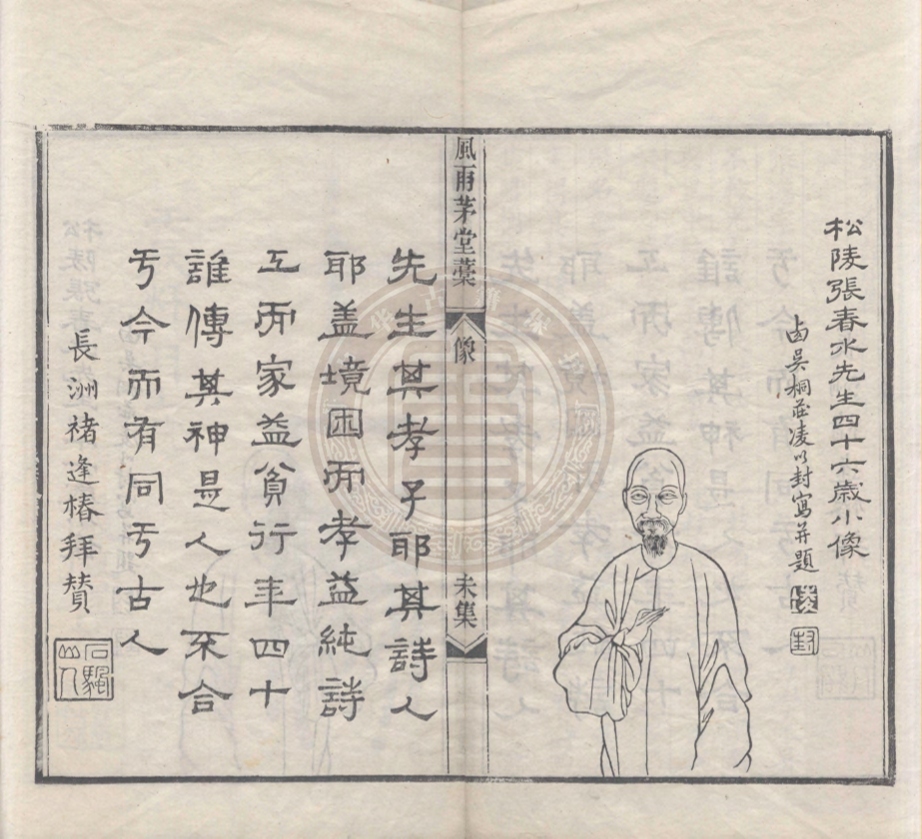 松陵張春水先生四十六歲小像
卥吳桐荘凌以封寫并題
凌
封
風雨茅堂藁
像
未集
先生其孝子耶其詩人
耶盖境困而孝益純詩
工而家益貧行年四十
誰傳其神是人也不合
于今而有同于古人
長洲褚逢椿拜贊
石颿
山人